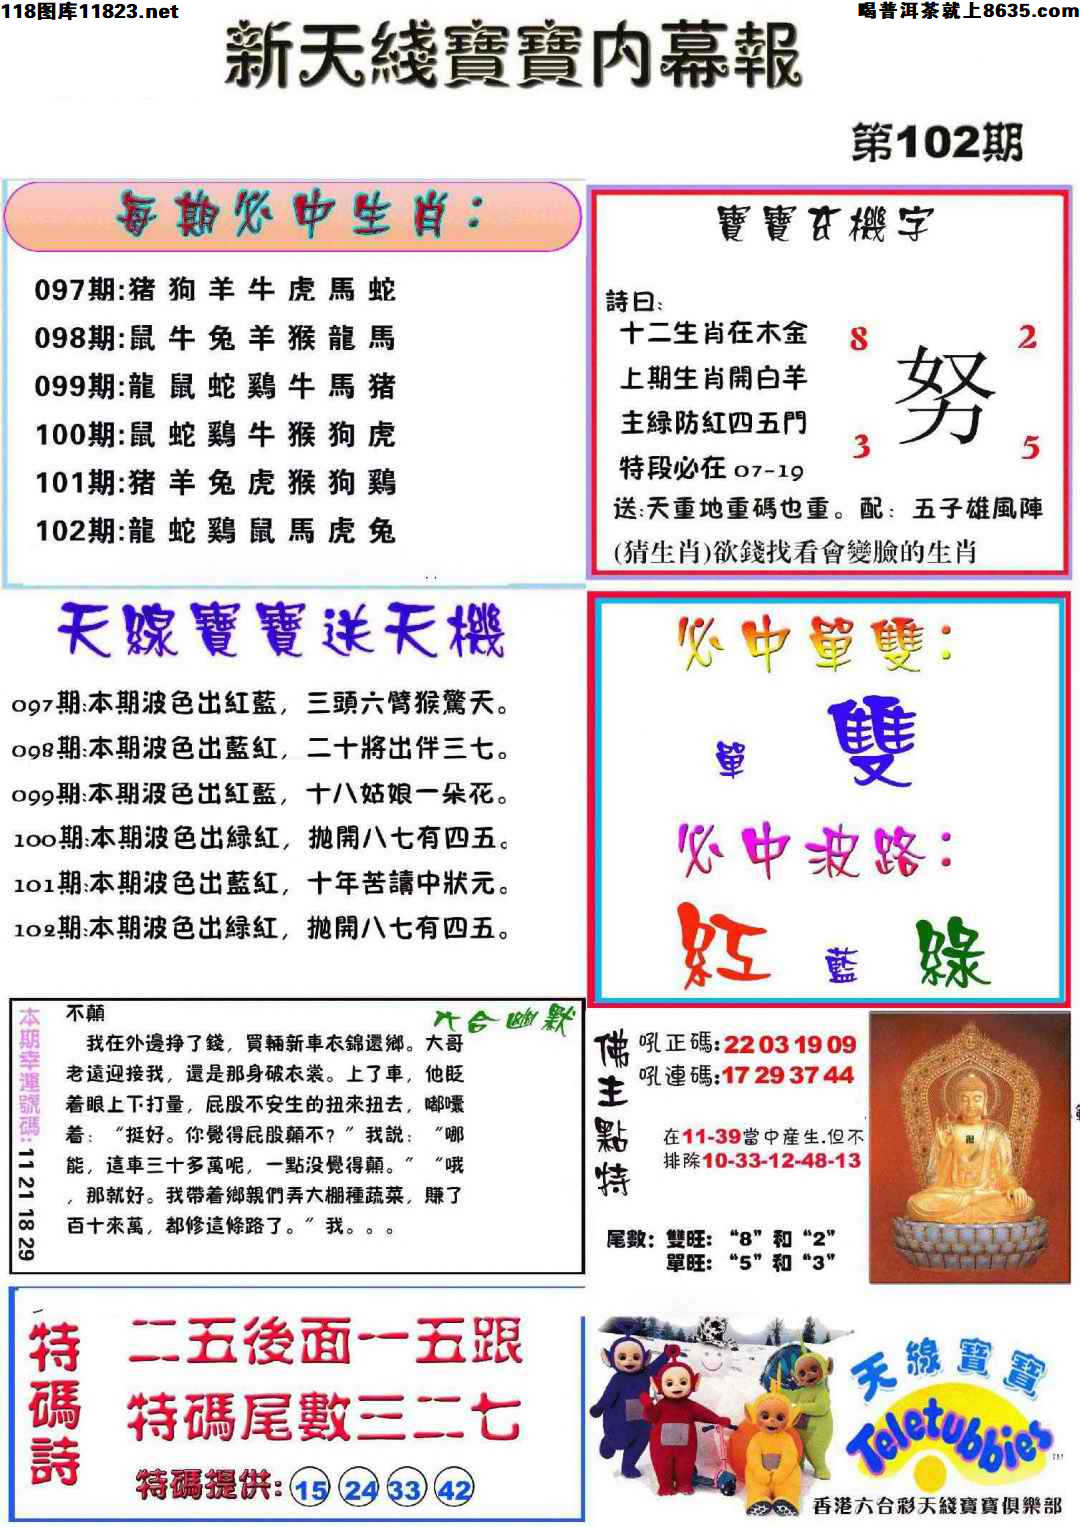 118图库11823.net
喝普洱茶就上8635.com
新天綫寶寶内幕報
第102期
每期必中生肖：
097期:猪狗羊牛虎馬蛇
098期:鼠牛兔羊猴龍馬
099期:龍鼠蛇鷄牛馬猪
100期:鼠蛇鷄牛猴狗虎
101期:猪羊兔虎猴狗鷄
102期:龍蛇鷄鼠馬虎兔
寶寶玄機字
詩曰:
十二生肖在木金
上期生肖開白羊
主緑防紅四五門
特段必在07-19
8 2
努
3 5
送:天重地重碼也重。配：五子雄風陣
(猜生肖)欲錢找看會變臉的生肖
天線寶寶送天機
097期:本期波色出紅藍，三頭六臂猴驚天。
098期:本期波色出藍紅，二十將出伴三七。
099期:本期波色出紅藍，十八姑娘一朵花。
100期:本期波色出緑紅，抛開八七有四五。
101期:本期波色出藍紅，十年苦讀中狀元。
102期:本期波色出緑紅，抛開八七有四五。
必中單雙：
單 雙
必中波路：
紅 藍 綠
本期幸運號碼:11 21 18 29
六合幽默
不顛
我在外邊挣了錢，買輛新車衣錦還鄉。大哥
老遠迎接我，還是那身破衣裳。上了車，他眨
着眼上下打量，屁股不安生的扭來扭去，嘟囔
着：“挺好。你覺得屁股顛不？”我説：“哪
能，這車三十多萬呢，一點没覺得顛。”“哦
，那就好。我帶着鄉親們弄大棚種蔬菜，賺了
百十來萬，都修這條路了。”我。。。
佛主點特
吼正碼:22 03 19 09
吼連碼:17 29 37 44
在11-39當中産生.但不
排除10-33-12-48-13
尾數：雙旺：“8”和“2”
單旺：“5”和“3”
特碼詩
二五後面一五跟
特碼尾數三二七
特碼提供: 15 24 33 42
天線寶寶
Teletubbies
TM
香港六合彩天綫寶寶俱樂部